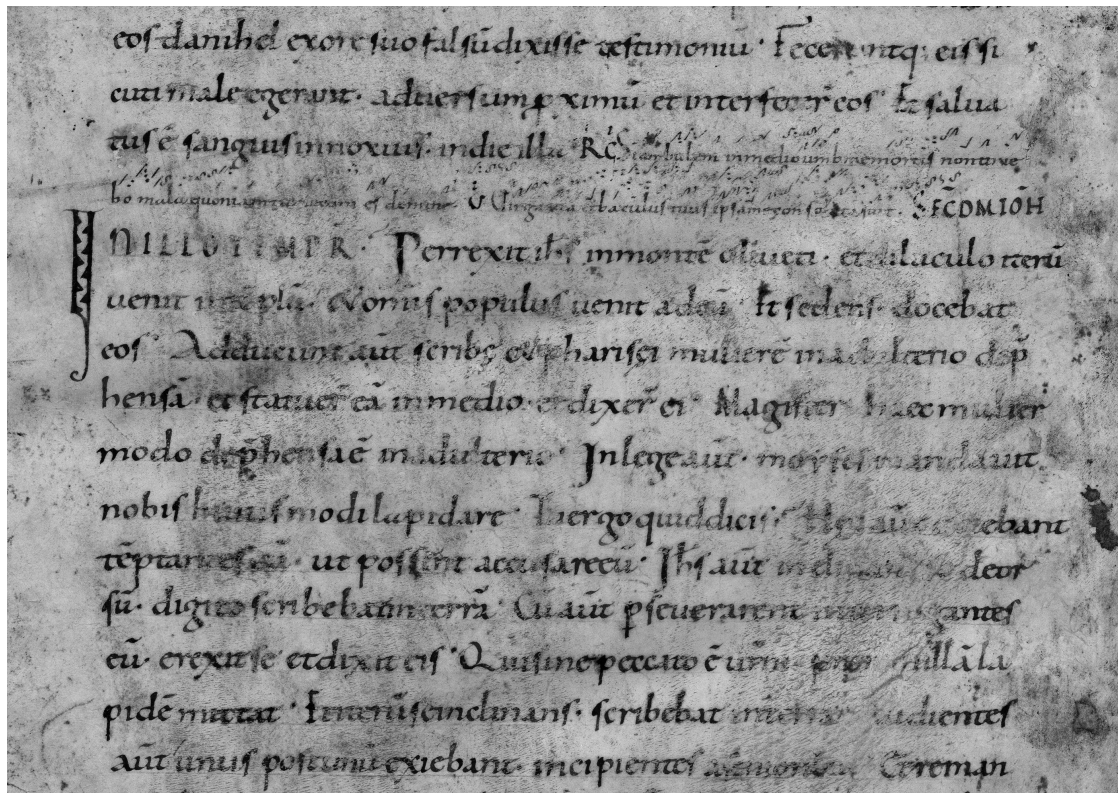 eos danihel ex ore suo falsū dixisse testimoniū · Feceruntq; eis si
cuti male egerant · adversum ꝓximū et interfecer̄ eos · Et salva
tus ē sanguis innoxius · in die illa RC̄ Si ambulem in medio umbrae mortis non time
bo mala quoniam tu mecum es domine · V̄ Virga tua et baculus tuus ipsa me consolata sunt · SEC̄DM IOH̄
IN ILLO TEMPR · Perrexit ih̄s in montē oliveti · et diluculo iterū
venit in tēplū · & omnis populus venit ad eū · Et sedens · docebat
eos · Adducunt aūt scribę et pharisęi mulierē in adulterio dep̄
hensā · et statuer̄ eā in medio · et dixer̄ ei · Magister haec mulier
modo dep̄hensa ē in adulterio · In lege aūt · moyses mandavit
nobis huius modi lapidare · Tu ergo quid dicis · Hęc aūt dicebant
tēptantes eū · ut possent accusare eū · Ih̄s aūt inclinans se deor
sū · digito scribebat in terrā · Cū aūt ꝑseverarent interrogantes
eū · erexit se et dixit eis · Qui sine peccato ē vr̄m · illā la
pidē mittat · Et iterū se inclinans · scribebat in audientes
aūt unus post unū exiebant · incipientes a senioribus · Et reman